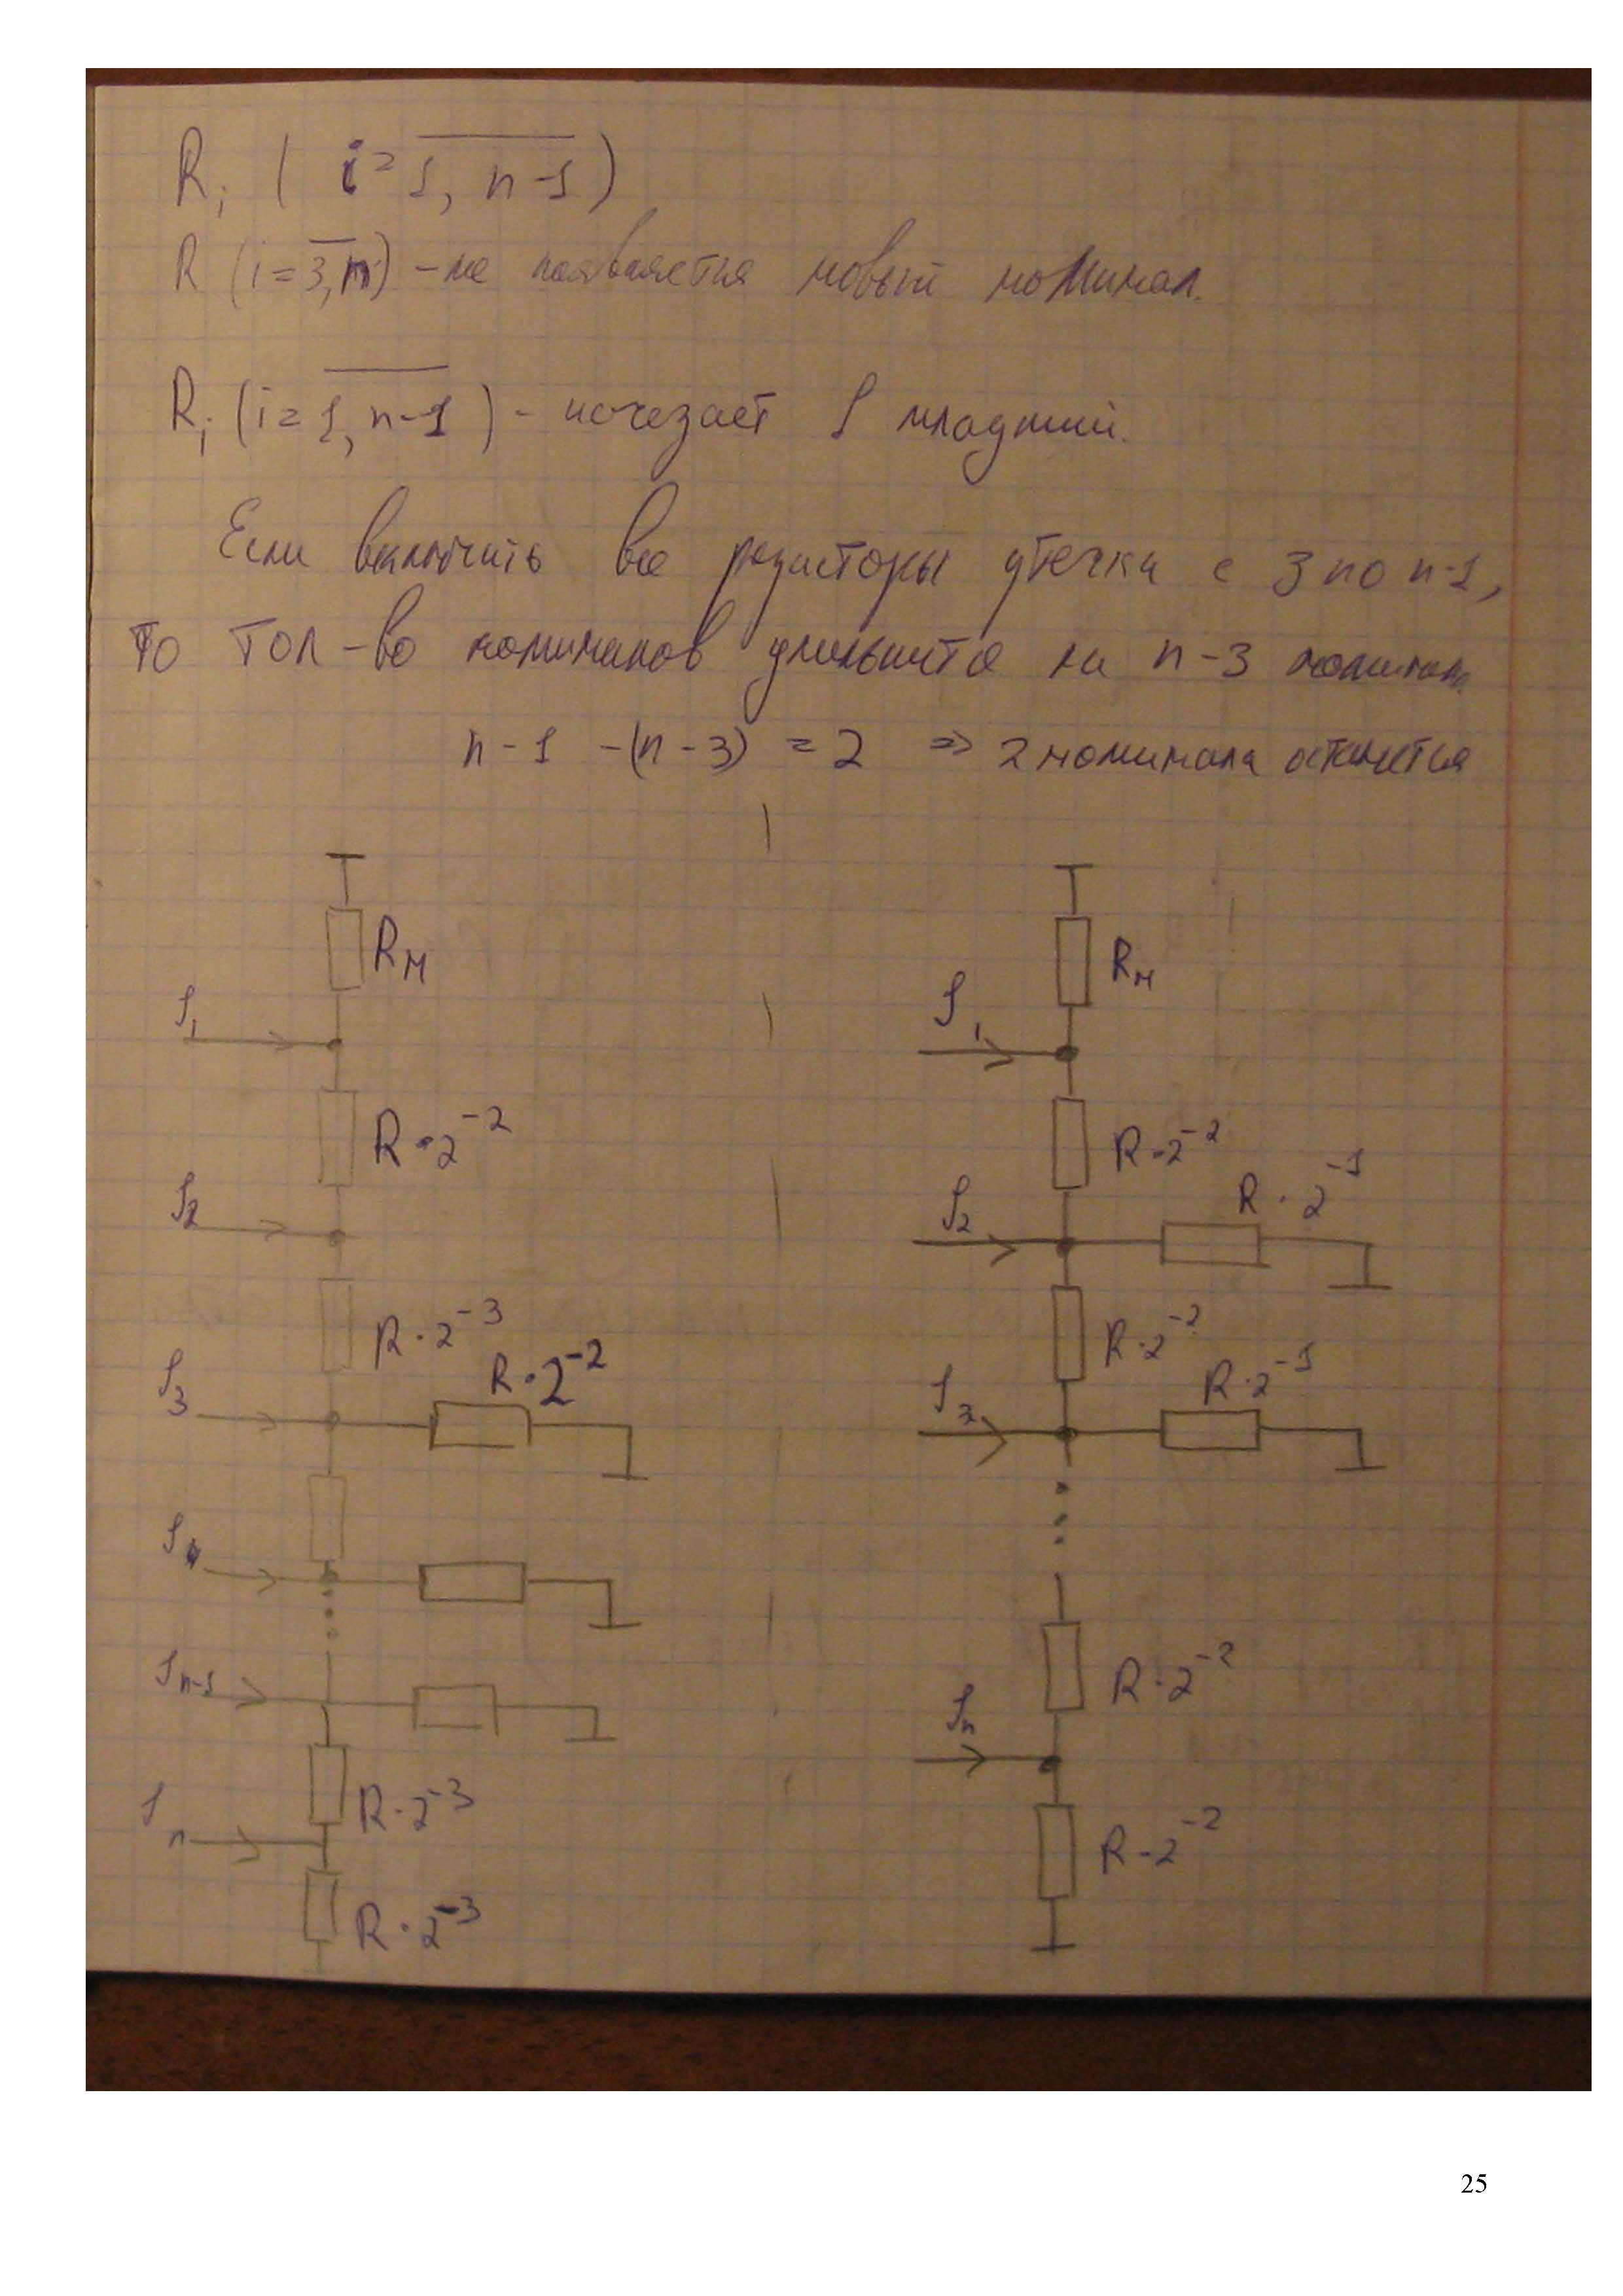 Ri ( i = 1, n-1 )
R (i = 3, n) - не появляется новый номинал.
Ri (i = 1, n-1) - исчезает 1 младший.
Если включить все резисторы утечки с 3 по n-1,
то кол-во номиналов уменьшится на n-3 номинала
n - 1 - (n - 3) = 2 ⇒ 2 номинала останется
Rн
Rн
I1
I1
R · 2^-2
R · 2^-2
R · 2^-1
I2
I2
R · 2^-3
R · 2^-2
R · 2^-2
R · 2^-1
I3
I3
I4
In-1
R · 2^-2
In
R · 2^-3
In
R · 2^-2
R · 2^-3
25